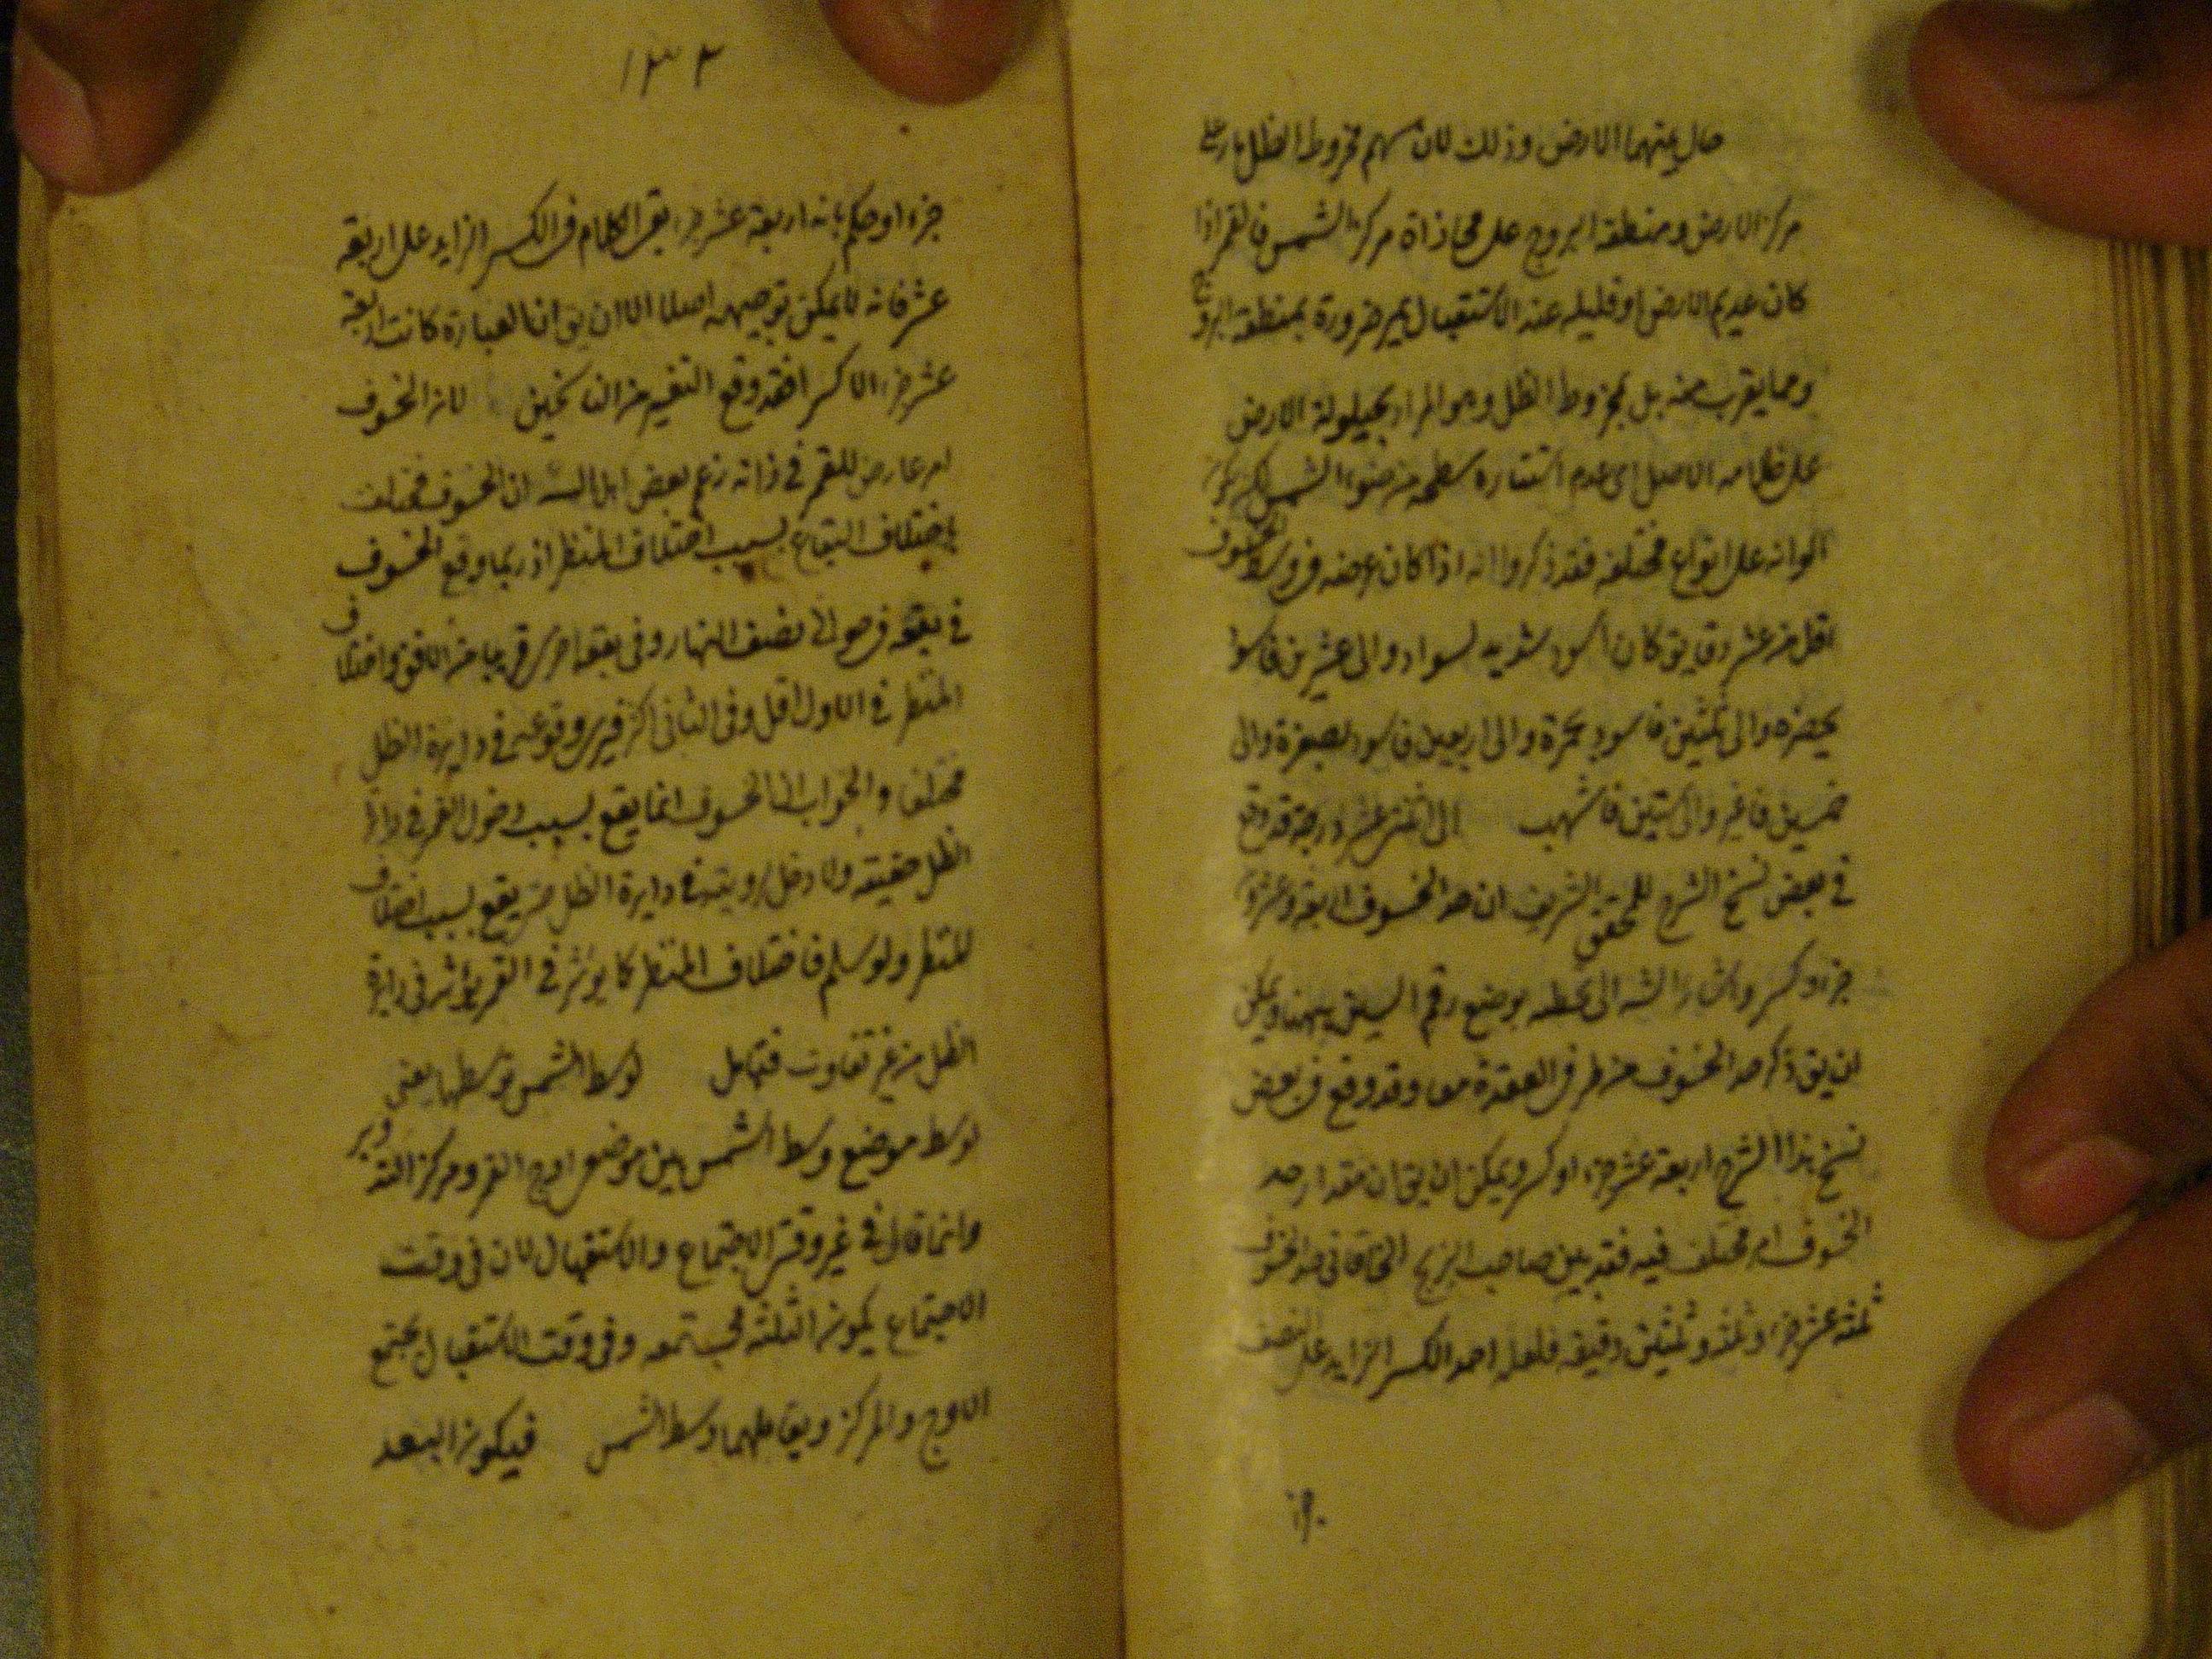 حال بينهما الارض وذلك لان سهم مخروط الظل مار على
مركز الارض ومنطقة البروج على محاذاة مركز الشمس فالقمر اذا
كان عديم العرض او قليله عند الاستقبال يمر ضرورة بمنطقة البروج
ومما يقرب منه بل بمخروط الظل وهو المراد بحيلولة الارض
على ظلامه الاصلى اى عدم استنارة سطحه من ضوء الشمس لكن يكون
الوانه على انواع مختلفه فقد ذكروا انه اذا كان عرضه فى وسط الخسوف
اقل من عشر دقايق كان اسود شديد السواد والى عشرين فاسود
بخضره والى ثلثين فاسود بحمرة والى اربعين فاسود بصفرة والى
خمسين فاغبر والى ستين فاشهب الى اثنى عشر درجة قد وقع
فى بعض نسخ الشرح للمحقق الشريف ان حد الخسوف اربعة وعشرون
جزء وكسر واشار الشه الى بوضع رقم
ان يق ذكر حد الخسوف من طرفى العقدة معا وقد وقع فى بعض
نسخ هذا الشرح اربعة عشر جزء او كسر ويمكن ان يق ان مقدار حد
الخسوف امر مختلف فيه فقد بين صاحب الزيج الخاقانى حد الخسوف
ثلثة عشر جزء وثلثه وثلثين دقيقه فلعله اخذ الكسر الزايد على النصف
١٩٠
١٣٢
جزء او حكم بانه اربعة عشر جزء بقى الكلام فى الكسر الزايد على اربعة
عشر فانه لا يمكن توجيهه اصلا الا ان يق ان العبارة كانت اربعة
عشر جزء الا كسرا فقد وقع التغيير من الناسخين لان الخسوف
امر عارض للقمر فى ذاته زعم بعض ان الخسوف مختلف
باختلاف البقاع بسبب اختلاف المنظر اذ ربما وقع الخسوف
فى بقعه فى حوالى نصف النهار وفى بقعه اخرى قريبا من الافق واختلاف
المنظر فى الاول اقل وفى الثانى اكثر فيرى وقوعه فى دايرة الظل
مختلفا والجواب ان الخسوف انما يقع بسبب دخول القمر فى دايرة
الظل حقيقه ولا دخل لرويته فى دايرة الظل حتى يقع بسبب اختلاف
المنظر ولو سلم فاختلاف المنظر كما يوثر فى القمر يوثر فى دايرة
الظل من غير تفاوت فتامل توسط الشمس توسطها يعنى
توسط موضع وسط الشمس بين موضعى اوج القمر ومركز التدوير
وانما قال فى غير وقتى الاجتماع والاستقبال لان فى وقت
الاجتماع يكون الثلثه مجتمعه وفى وقت الاستقبال يجتمع
الاوج والمركز ويقابلهما وسط الشمس فيكون البعد